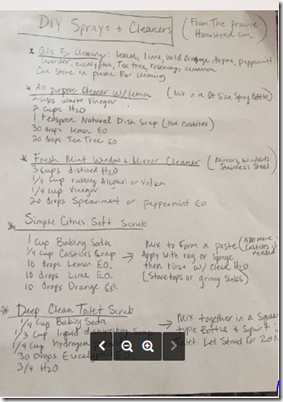 DIY Sprays + Cleaners (From The prairie
Homestead.com
* Oils For cleaning: lemon, lime, wild orange, thyme, Peppermint
lavender, eucalyptus, Tea tree, rosemary, cinnamon
Can store in pantry For Cleaning
* All purpose Cleaner w/lemon (Mix in a Qt Size Spray Bottle)
2 cups White Vinegar
2 cups H2O
1 teaspoon Natural Dish Soap (Not Castile)
30 drops lemon EO
20 drops Tea Tree EO
* Fresh Mint Window & Mirror Cleaner (Mirrors, Windows
Stainless Steel)
3 cups distilled H2O
1/4 cup rubbing Alcohol or Vodka
1/4 cup vinegar
20 drops Spearmint or peppermint EO
* Simple Citrus Soft Scrub
1 Cup Baking Soda
1/4 cup Castile Soap → Mix to Form a paste (ADD more
10 drops Lemon EO. Apply with rag or Sponge needed
10 drops Lime EO. then Rinse w/ Clean H2O
10 drops Orange EO. (Stovetops or grimy Sinks)
* Deep Clean Toilet Scrub
1/4 cup Baking Soda → Mix together in a
1/3 Cup liquid type Bottle + Squirt
1/4 cup hydrogen let. Let Stand for 20
30 Drops Eucalyptus
3/4 H2O